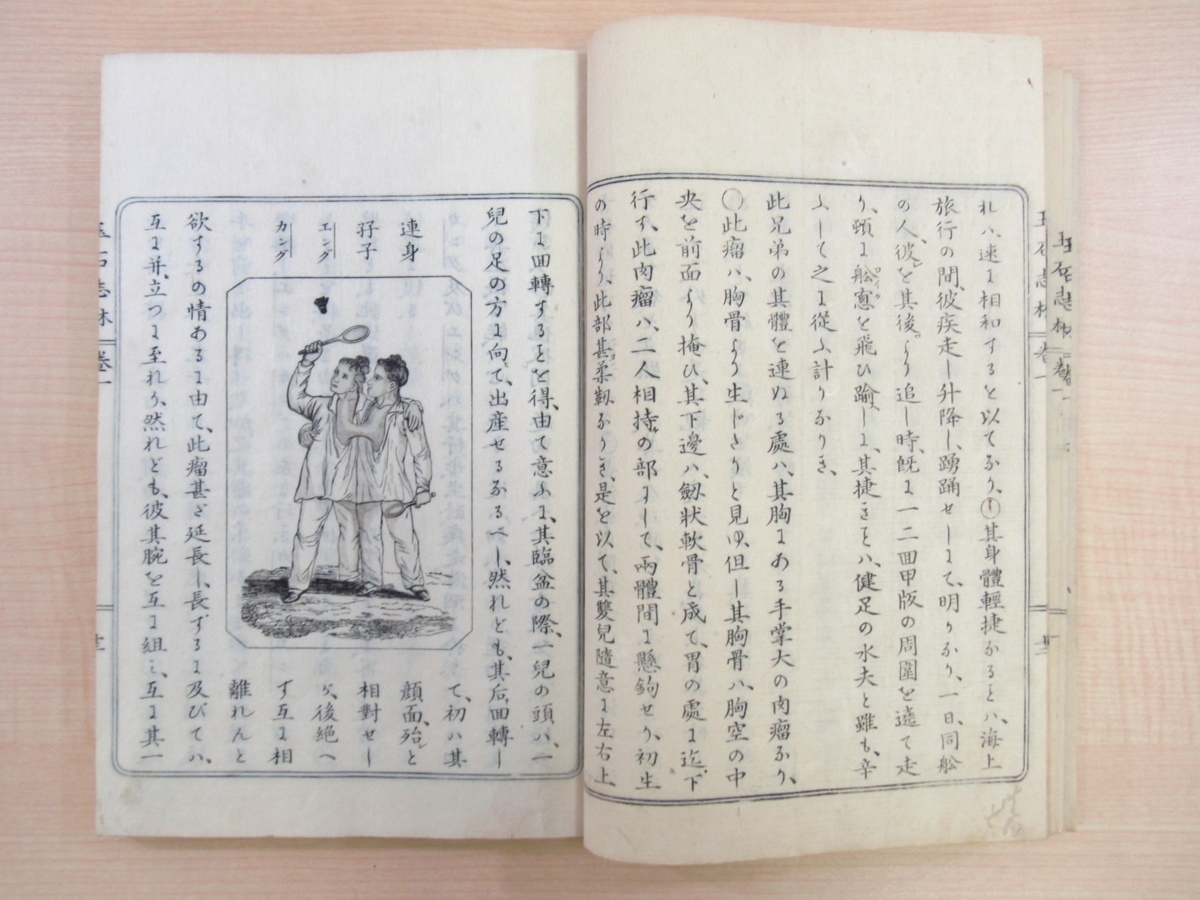 れハ、速に相和するを以てなり、○其身體輕捷なるをハ、海上
旅行の間、彼疾走し升降し、踴踊せしにて、明りなり、一日、同船
の人、彼を其後より追し時、既に一二回甲版の周圍を遶て走
り、頓に船窻を飛ひ踰しに、其捷きをハ、健足の水夫と雖も、辛
ふして之に從ふ計りなりき、
此兄弟の其體を連ぬる處ハ、其胸にある手掌大の肉瘤なり、
○此瘤ハ、胸骨より生じたりと見ゆ、但し其胸骨ハ、胸空の中
央を前面より掩ひ、其下邊ハ、劔状軟骨と成て、胃の處に迄下
行す、此肉瘤ハ、二人相持の部にして、兩體間に懸鉤せり、初生
の時より、此部甚柔靱なりき、是を以て、其雙兒隨意に左右上
下に回轉するをを得、由て意ふに、其臨盆の際、一兒の頭ハ、一
兒の足の方に向て、出産せるなるべし、然れとも、其后、回轉し
て、初ハ其
顔面、殆と
相對せし
が、後絶へ
ず互に相
離れんと
連身
孖子
エング
カング
欲するの情あるに由て、此瘤甚ざ延長し、長ずるに及びてハ、
互に并立つに至れり、然れども、彼其腕を互に組ミ、互に其一
玉石志林
卷一
玉石志林
卷一
玉石志林 卷一